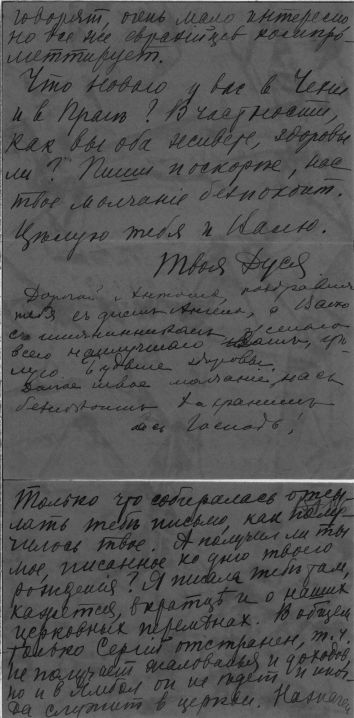 говорят, очень мало интересно
но все же евразийцев компро-
меттирует.
Что новаго у вас в Чехии
и в Праге? В частности,
как вы оба живете, здоровы
ли? Пиши поскорее, нас
твое молчание безпокоит.
Цѣлую тебя и Валю.
Твоя Дуся
Дорогой Антоша, поздравляю
тебя съ днемъ Ангела, а Валю
с именинникомъ желаю
всего наилучшаго Вамъ,
Будьте здоровы.
твое молчание насъ
безпокоитъ Да хранитъ
васъ Господь!
Только что собиралась отсы-
лать тебѣ письмо, как полу-
чилось твое. А получил ли ты
мое, писанное ко дню твоего
рождения? Я писала тебѣ там,
кажется, вкратцѣ и о наших
церковных перемѣнах. В общем
только Сергий отстранен, т. ч.
не получает жалованья и доходов,
но и в он не едет и иног-
да служит в церкви.